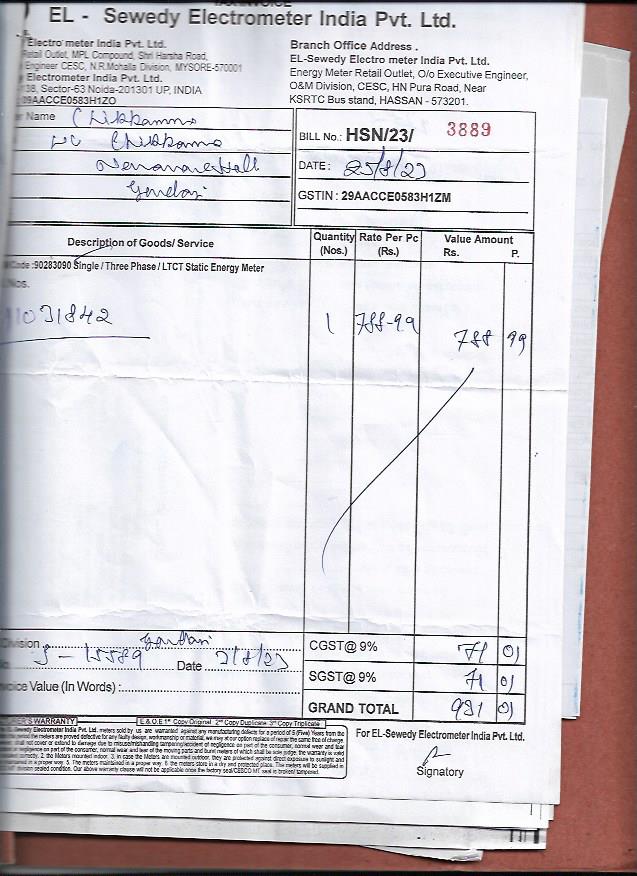 EL - Sewedy Electrometer India Pvt. Ltd.
Electro meter India Pvt. Ltd.
Retail Outlet, MPL Compound, Shri Harsha Road,
Engineer CESC, N.R.Mohalla Division, MYSORE-570001
Electrometer India Pvt. Ltd.
138, Sector-63 Noida-201301 UP, INDIA
29AACCE0583H1ZO
Branch Office Address .
EL-Sewedy Electro meter India Pvt. Ltd.
Energy Meter Retail Outlet, O/o Executive Engineer,
O&M Division, CESC, HN Pura Road, Near
KSRTC Bus stand, HASSAN - 573201.
Name Chikkamma
Chikkamma
BILL No.: HSN/23/ 3889
DATE : 25/8/23
GSTIN : 29AACCE0583H1ZM
Description of Goods/ Service
Quantity (Nos.)
Rate Per Pc (Rs.)
Value Amount
Rs. P.
Code :90283090 Single / Three Phase / LTCT Static Energy Meter
Nos.
1031842 1 788-99 788 99
Division
15589 Date
CGST@ 9% 71 01
SGST@ 9% 71 01
voice Value (In Words) :
GRAND TOTAL 931 01
WARRANTY E & O.E 1st Copy Original 2nd Copy Duplicate 3rd Copy Triplicate
Sewedy Electrometer India Pvt. Ltd. meters sold by us are warranted against any manufacturing defects for a period of 5 (Five) Years from the
For EL-Sewedy Electrometer India Pvt. Ltd.
Signatory